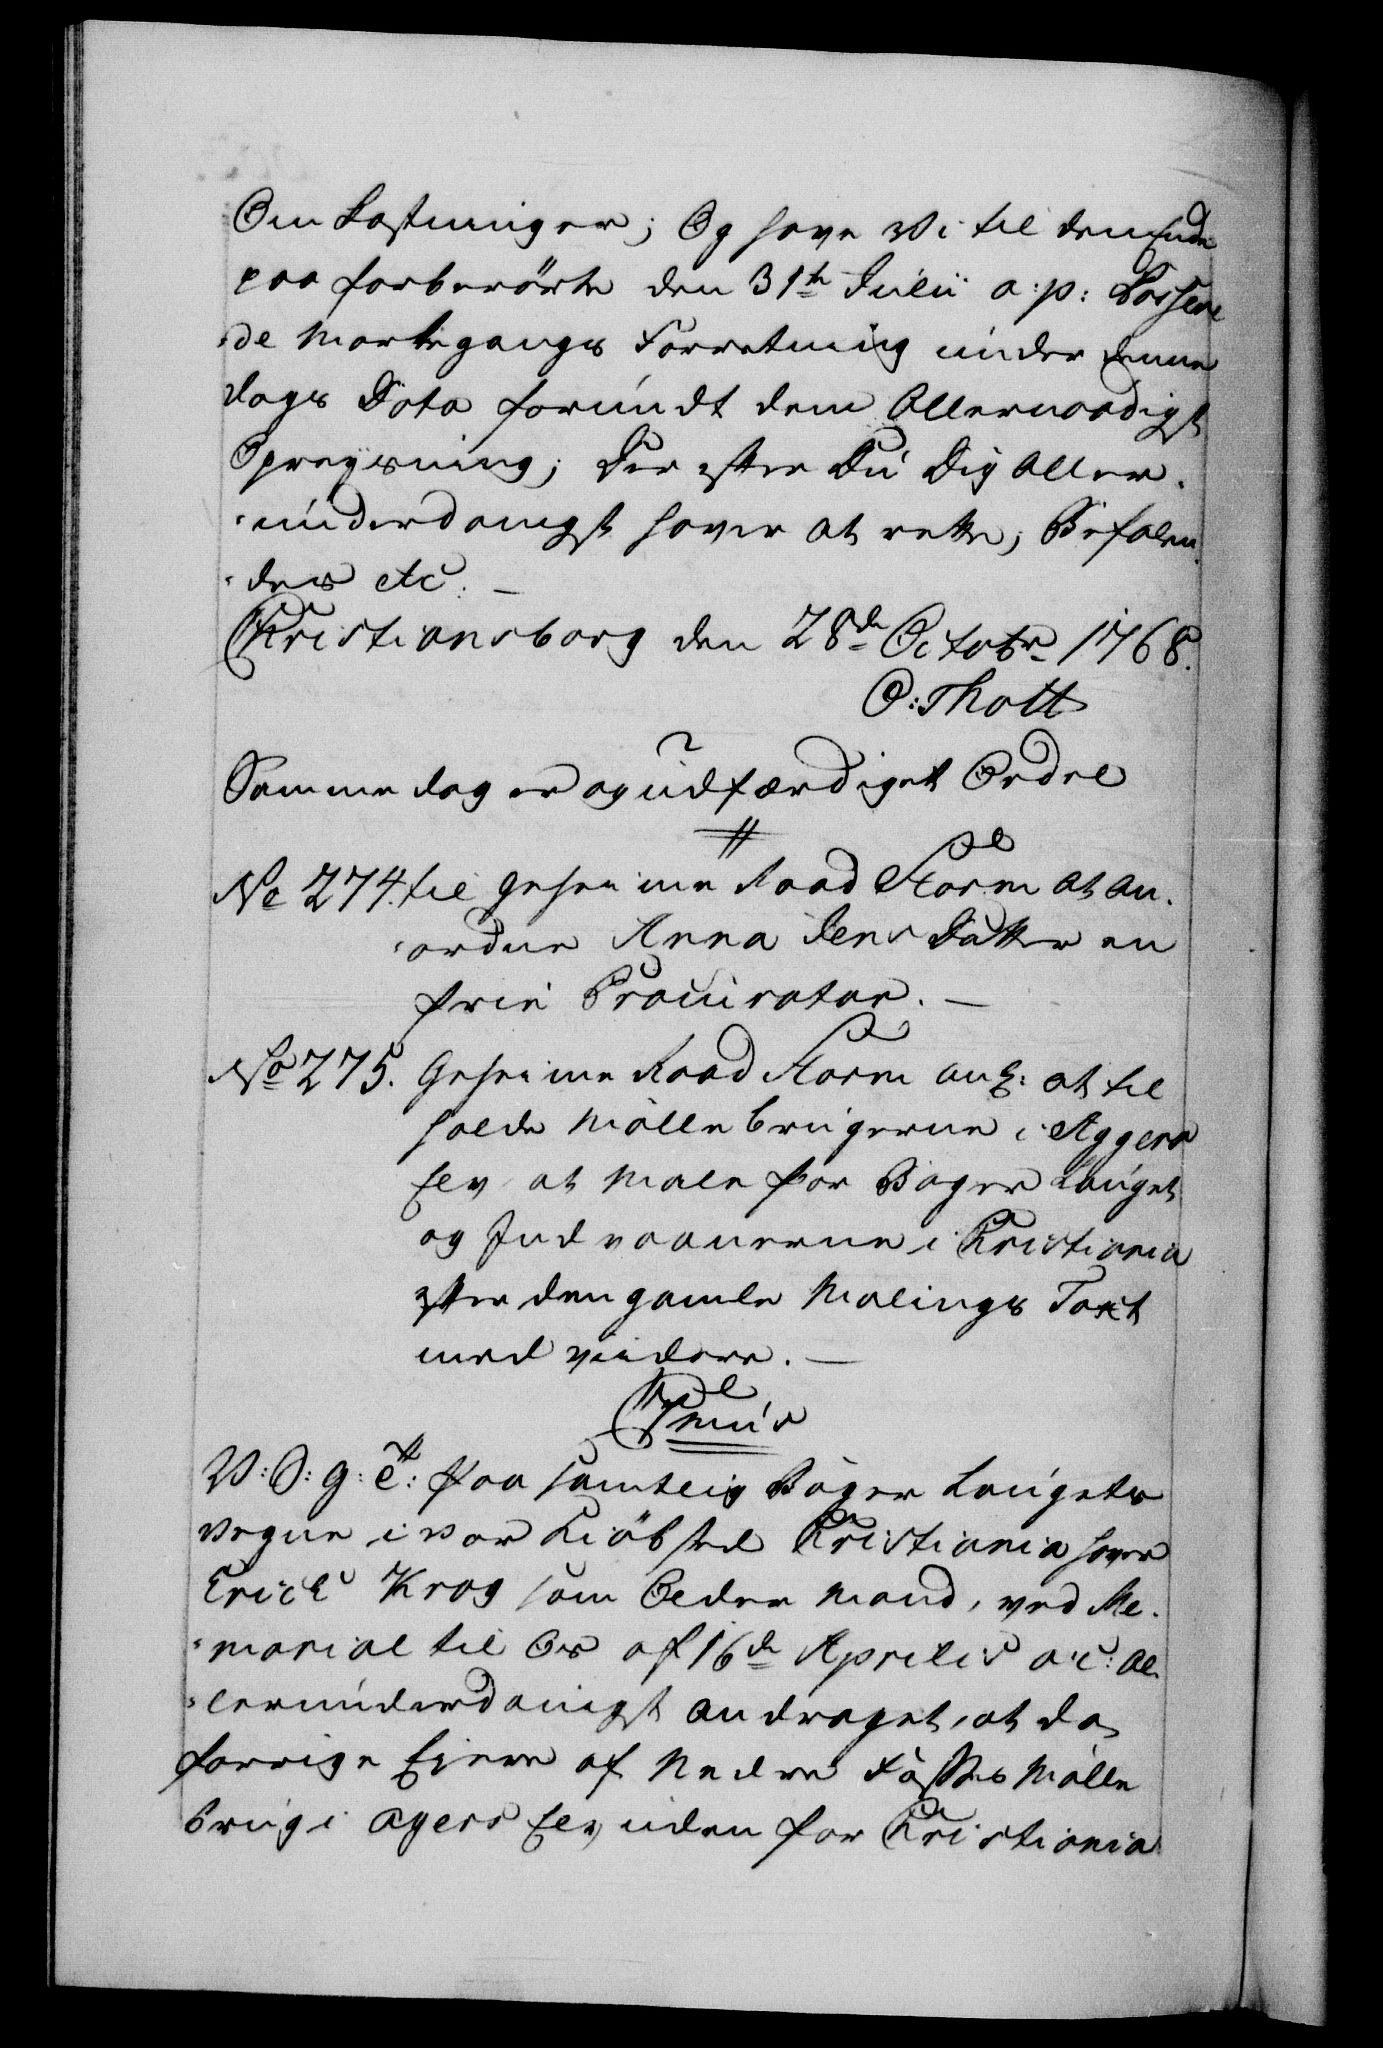 Om Kostninger; Og have Vi til den Ende
paa forberörte den 31te Julii a: p: Passere
de Markegangs Forretning under denne
dags Dato forundt dem Allernaadigst
Opreysning; Der efter Du Dig Aller-
-underdanigst haver at rette; Befalen-
-des etc. —
Christiansborg den 28de Octobr 1768.
O: Thott
Samme dag er og udfærdiget Ordre
//
No 274. til Geheime Raad Storm at an-
-ordne Anna Jens Datter en
frie Procurator. —
No 275. Geheime Raad Storm ang: at til
holde Mölle brugerne i Aggers
Elv at Male for Bager Lauget
og Indvaanerne i Christiania
efter den gamle Malings Taxt
med viidere. —
Cmus
V: S: G: E: Paa samtlig Bager Laugets
vegne i vor Kiöbsted Christiania haver
Erich Krog som Older Mand, ved Me-
-morial til Os af 16de Aprilis a: c: Al-
-lerunderdanigst andraget, at da
forrige Ejere af Nedre Fosses Mölle
brug i Agers Elv uden for Christiania